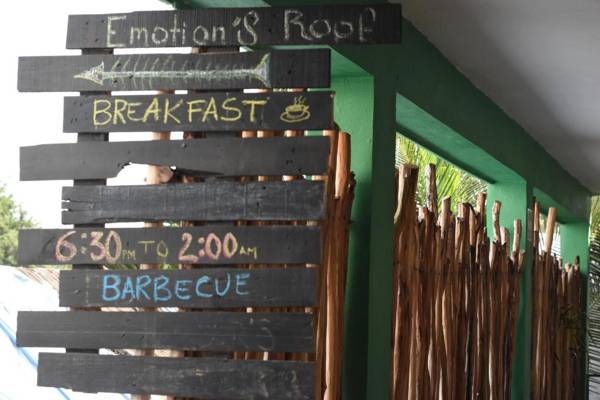 Emotion's Roof
BREAKFAST
6:30 PM TO 2:00 AM
BARBECUE